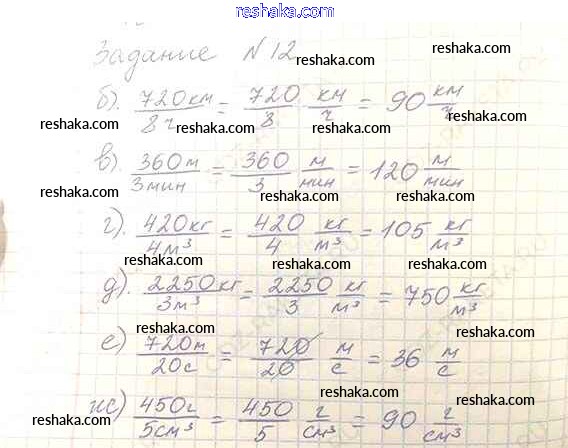 www.reshaka.com
Задание №12 reshaka.com
б). 720км/8ч = 720/8 км/ч = 90 км/ч
reshaka.com reshaka.com reshaka.com reshaka.com
в). 360м/3мин = 360/3 м/мин = 120 м/мин
reshaka.com reshaka.com reshaka.com
г). 420кг/4м³ = 420/4 кг/м³ = 105 кг/м³
reshaka.com reshaka.com reshaka.com
д). 2250кг/3м³ = 2250/3 кг/м³ = 750 кг/м³
reshaka.com reshaka.com reshaka.com
reshaka.com reshaka.com
е) 720м/20с = 720/20 м/с = 36 м/с
reshaka.com reshaka.com reshaka.com
ж) 450г/5см³ = 450/5 г/см³ = 90 г/см³
reshaka.com reshaka.com reshaka.com